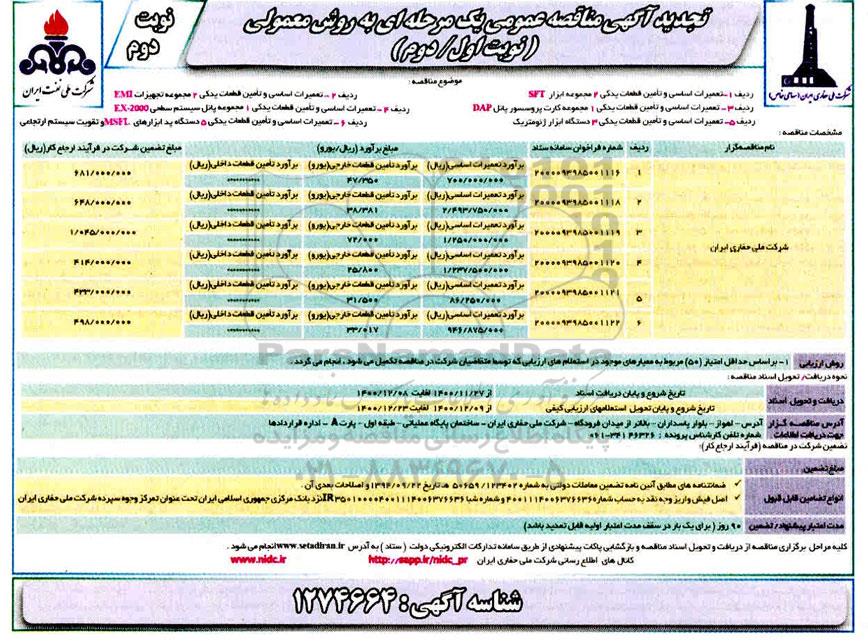 تجدید آگهی مناقصه عمومی یک مرحله ای به روش معمولی
(نوبت اول / دوم)
نوبت دوم
شرکت ملی نفت ایران
شرکت ملی حفاری ایران (سهامی خاص)
موضوع مناقصه :
ردیف ۱- تعمیرات اساسی و تأمین قطعات یدکی ۲ مجموعه ابزار SFT
ردیف ۲- تعمیرات اساسی و تأمین قطعات یدکی ۲ مجموعه تجهیزات EMI
ردیف ۳- تعمیرات اساسی و تأمین قطعات یدکی ۱ مجموعه کارت پروسسور پانل DAP
ردیف ۴- تعمیرات اساسی و تأمین قطعات یدکی ۱ مجموعه پانل سیستم سطحی EX-2000
ردیف ۵- تعمیرات اساسی و تأمین قطعات یدکی ۳ دستگاه ابزار ژئومتریک
ردیف ۶- تعمیرات اساسی و تأمین قطعات یدکی ۵ دستگاه پد ابزارهای MSFL و تقویت سیستم ارتجاعی
مشخصات مناقصه :
نام مناقصه گزار ردیف شماره فراخوان سامانه ستاد مبلغ برآورد (ریال/یورو) مبلغ تضمین شرکت در فرآیند ارجاع کار (ریال)
شرکت ملی حفاری ایران
۱ ۲۰۰۰۰۹۳۹۸۵۰۰۱۱۱۶ برآورد تعمیرات اساسی(ریال) برآورد تأمین قطعات خارجی(یورو) برآورد تأمین قطعات داخلی(ریال) ۶۸۱/۰۰۰/۰۰۰
۷۰۰/۰۰۰/۰۰۰ ۴۷/۳۵۰ ----------
۲ ۲۰۰۰۰۹۳۹۸۵۰۰۱۱۱۸ برآورد تعمیرات اساسی(ریال) برآورد تأمین قطعات خارجی(یورو) برآورد تأمین قطعات داخلی(ریال) ۶۴۸/۰۰۰/۰۰۰
۲/۴۹۳/۷۵۰/۰۰۰ ۳۸/۳۸۱ ----------
۳ ۲۰۰۰۰۹۳۹۸۵۰۰۱۱۱۹ برآورد تعمیرات اساسی(ریال) برآورد تأمین قطعات خارجی(یورو) برآورد تأمین قطعات داخلی(ریال) ۱/۰۴۵/۰۰۰/۰۰۰
۱/۲۵۰/۰۰۰/۰۰۰ ۷۲/۰۰۰ ----------
۴ ۲۰۰۰۰۹۳۹۸۵۰۰۱۱۲۰ برآورد تعمیرات اساسی(ریال) برآورد تأمین قطعات خارجی(یورو) برآورد تأمین قطعات داخلی(ریال) ۴۱۴/۰۰۰/۰۰۰
۱/۲۳۷/۵۰۰/۰۰۰ ۲۵/۸۰۰ ----------
۵ ۲۰۰۰۰۹۳۹۸۵۰۰۱۱۲۱ برآورد تعمیرات اساسی(ریال) برآورد تأمین قطعات خارجی(یورو) برآورد تأمین قطعات داخلی(ریال) ۴۳۳/۰۰۰/۰۰۰
۸۶/۲۵۰/۰۰۰ ۳۱/۵۰۰ ----------
۶ ۲۰۰۰۰۹۳۹۸۵۰۰۱۱۲۲ برآورد تعمیرات اساسی(ریال) برآورد تأمین قطعات خارجی(یورو) برآورد تأمین قطعات داخلی(ریال) ۴۹۸/۰۰۰/۰۰۰
۹۴۶/۸۷۵/۰۰۰ ۳۳/۰۱۷ ----------
ParsNamadData
روش ارزیابی ۱- بر اساس حداقل امتیاز (۵۰) مربوط به معیارهای موجود در استعلام های ارزیابی که توسط متقاضیان شرکت در مناقصه تکمیل می شود ، انجام می گردد .
نحوه دریافت/ تحویل اسناد مناقصه :
دریافت و تحویل اسناد
تاریخ شروع و پایان دریافت اسناد از ۱۴۰۰/۱۱/۲۷ لغایت ۱۴۰۰/۱۲/۰۸
تاریخ شروع و پایان تحویل استعلامهای ارزیابی کیفی از ۱۴۰۰/۱۲/۰۹ لغایت ۱۴۰۰/۱۲/۲۳
آدرس مناقصه گزار جهت دریافت اطلاعات
آدرس - اهواز - بلوار پاسداران - بالاتر از میدان فرودگاه - شرکت ملی حفاری ایران - ساختمان پایگاه عملیاتی - طبقه اول - پارت A - اداره قراردادها
شماره تلفن کارشناس پرونده : ۳۴۱۴۶۳۲۶-۰۶۱
پایگاه اطلاع رسانی مناقصه و مزایده
۰۲۱-۸۸۳۴۹۶۷۰-۵
تضمین شرکت در مناقصه (فرآیند ارجاع کار):
مبلغ تضمین
انواع تضامین قابل قبول
✓ ضمانتنامه های مطابق آیین نامه تضمین معاملات دولتی به شماره ۱۲۳۴۰۲/ت ۵۰۶۵۹ هـ تاریخ ۱۳۹۴/۰۹/۲۲ و اصلاحات بعدی آن .
✓ اصل فیش واریز وجه نقد به حساب شماره ۴۰۰۱۱۱۴۰۰۶۳۷۶۶۳۶ و شماره شبا IR۳۵۰۱۰۰۰۰۴۰۰۱۱۱۴۰۰۶۳۷۶۶۳۶ نزد بانک مرکزی جمهوری اسلامی ایران تحت عنوان تمرکز وجوه سپرده شرکت ملی حفاری ایران
مدت اعتبار پیشنهاد/ تضمین ۹۰ روز ( برای یک بار در سقف مدت اعتبار اولیه قابل تمدید باشد)
کلیه مراحل برگزاری مناقصه از دریافت و تحویل اسناد مناقصه و بازگشایی پاکات پیشنهادی از طریق سامانه تدارکات الکترونیکی دولت ( ستاد ) به آدرس www.setadiran.ir انجام می شود .
کانال های اطلاع رسانی شرکت ملی حفاری ایران http://sapp.ir/nidc_pr www.nidc.ir
شناسه آگهی : ۱۲۷۴۶۶۴